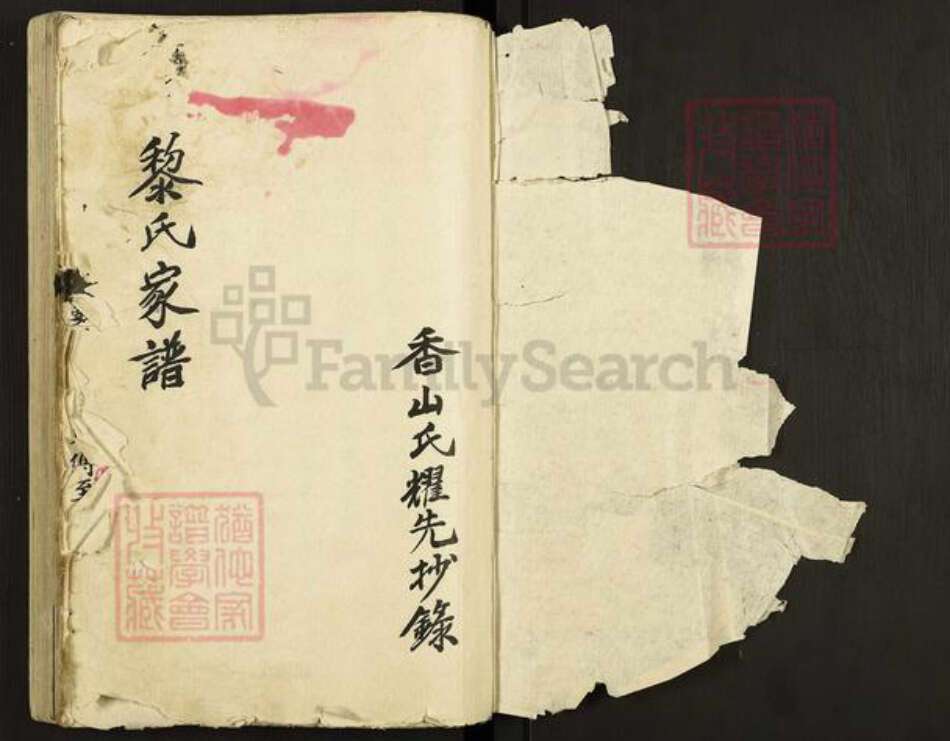 香山氏耀先抄錄
黎氏家譜
猶他家
譜學會
收藏
猶他家
譜學會
收藏
FamilySearch